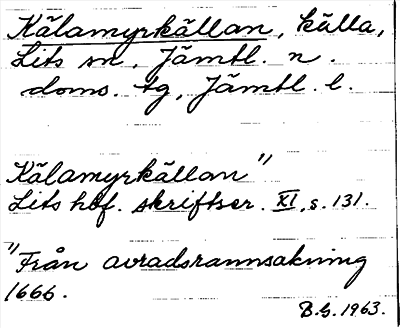 Kälamyrkällan, källa,
Lits sn, Jämtl. n.
doms. tg, Jämtl. l.
Kälamyrkällan"
Lits hbf. skriftser. XI, s. 131.
"Från avradsrannsakning
1666.
B.G. 1963.